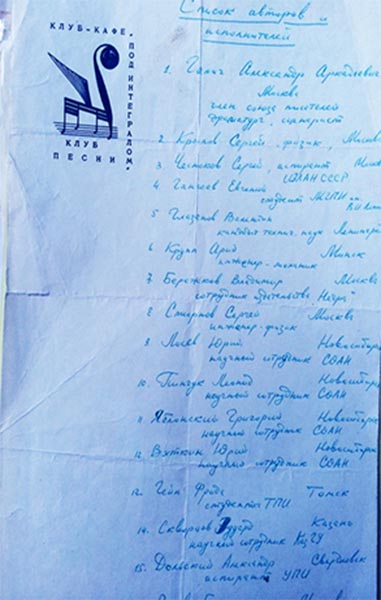 КЛУБ-КАФЕ „ПОД ИНТЕГРАЛОМ"
КЛУБ
ПЕСНИ
Список авторов и
исполнителей
1. Галич Александр Аркадьевич
Москва
член союза писателей
драматург, сценарист
2 Крылов Сергей, физик, Москва
3. Чесноков Сергей, аспирант
АН СССР
4. Евгений
студент МГПИ им.
5 Глазанов Валентин
кандидат технич. наук Ленинград
6 Крупп Арик Минск
инженер-механик
7 Бережков Владимир Москва
сотрудник
8 Смирнов Сергей Москва
инженер-физик
9. Юрий Новосибирск
научный сотрудник СОАН
10. Новосибирск
научный сотрудник СОАН
11 Яблонский Григорий Новосибирск
научный сотрудник СОАН
12 Вуткин Юрий Новосибирск
научный сотрудник СОАН
13. Гейн Томск
ТПИ
14. Скворцов Эдуард Казань
научный сотрудник
15. Дольский Александр Свердловск
аспирант УПИ